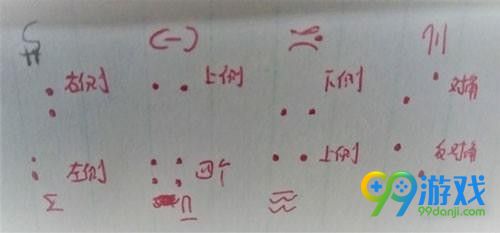 右侧 上侧 下侧 对角
左侧 四个 上侧 反对角
Σ
99游戏
99danji.com